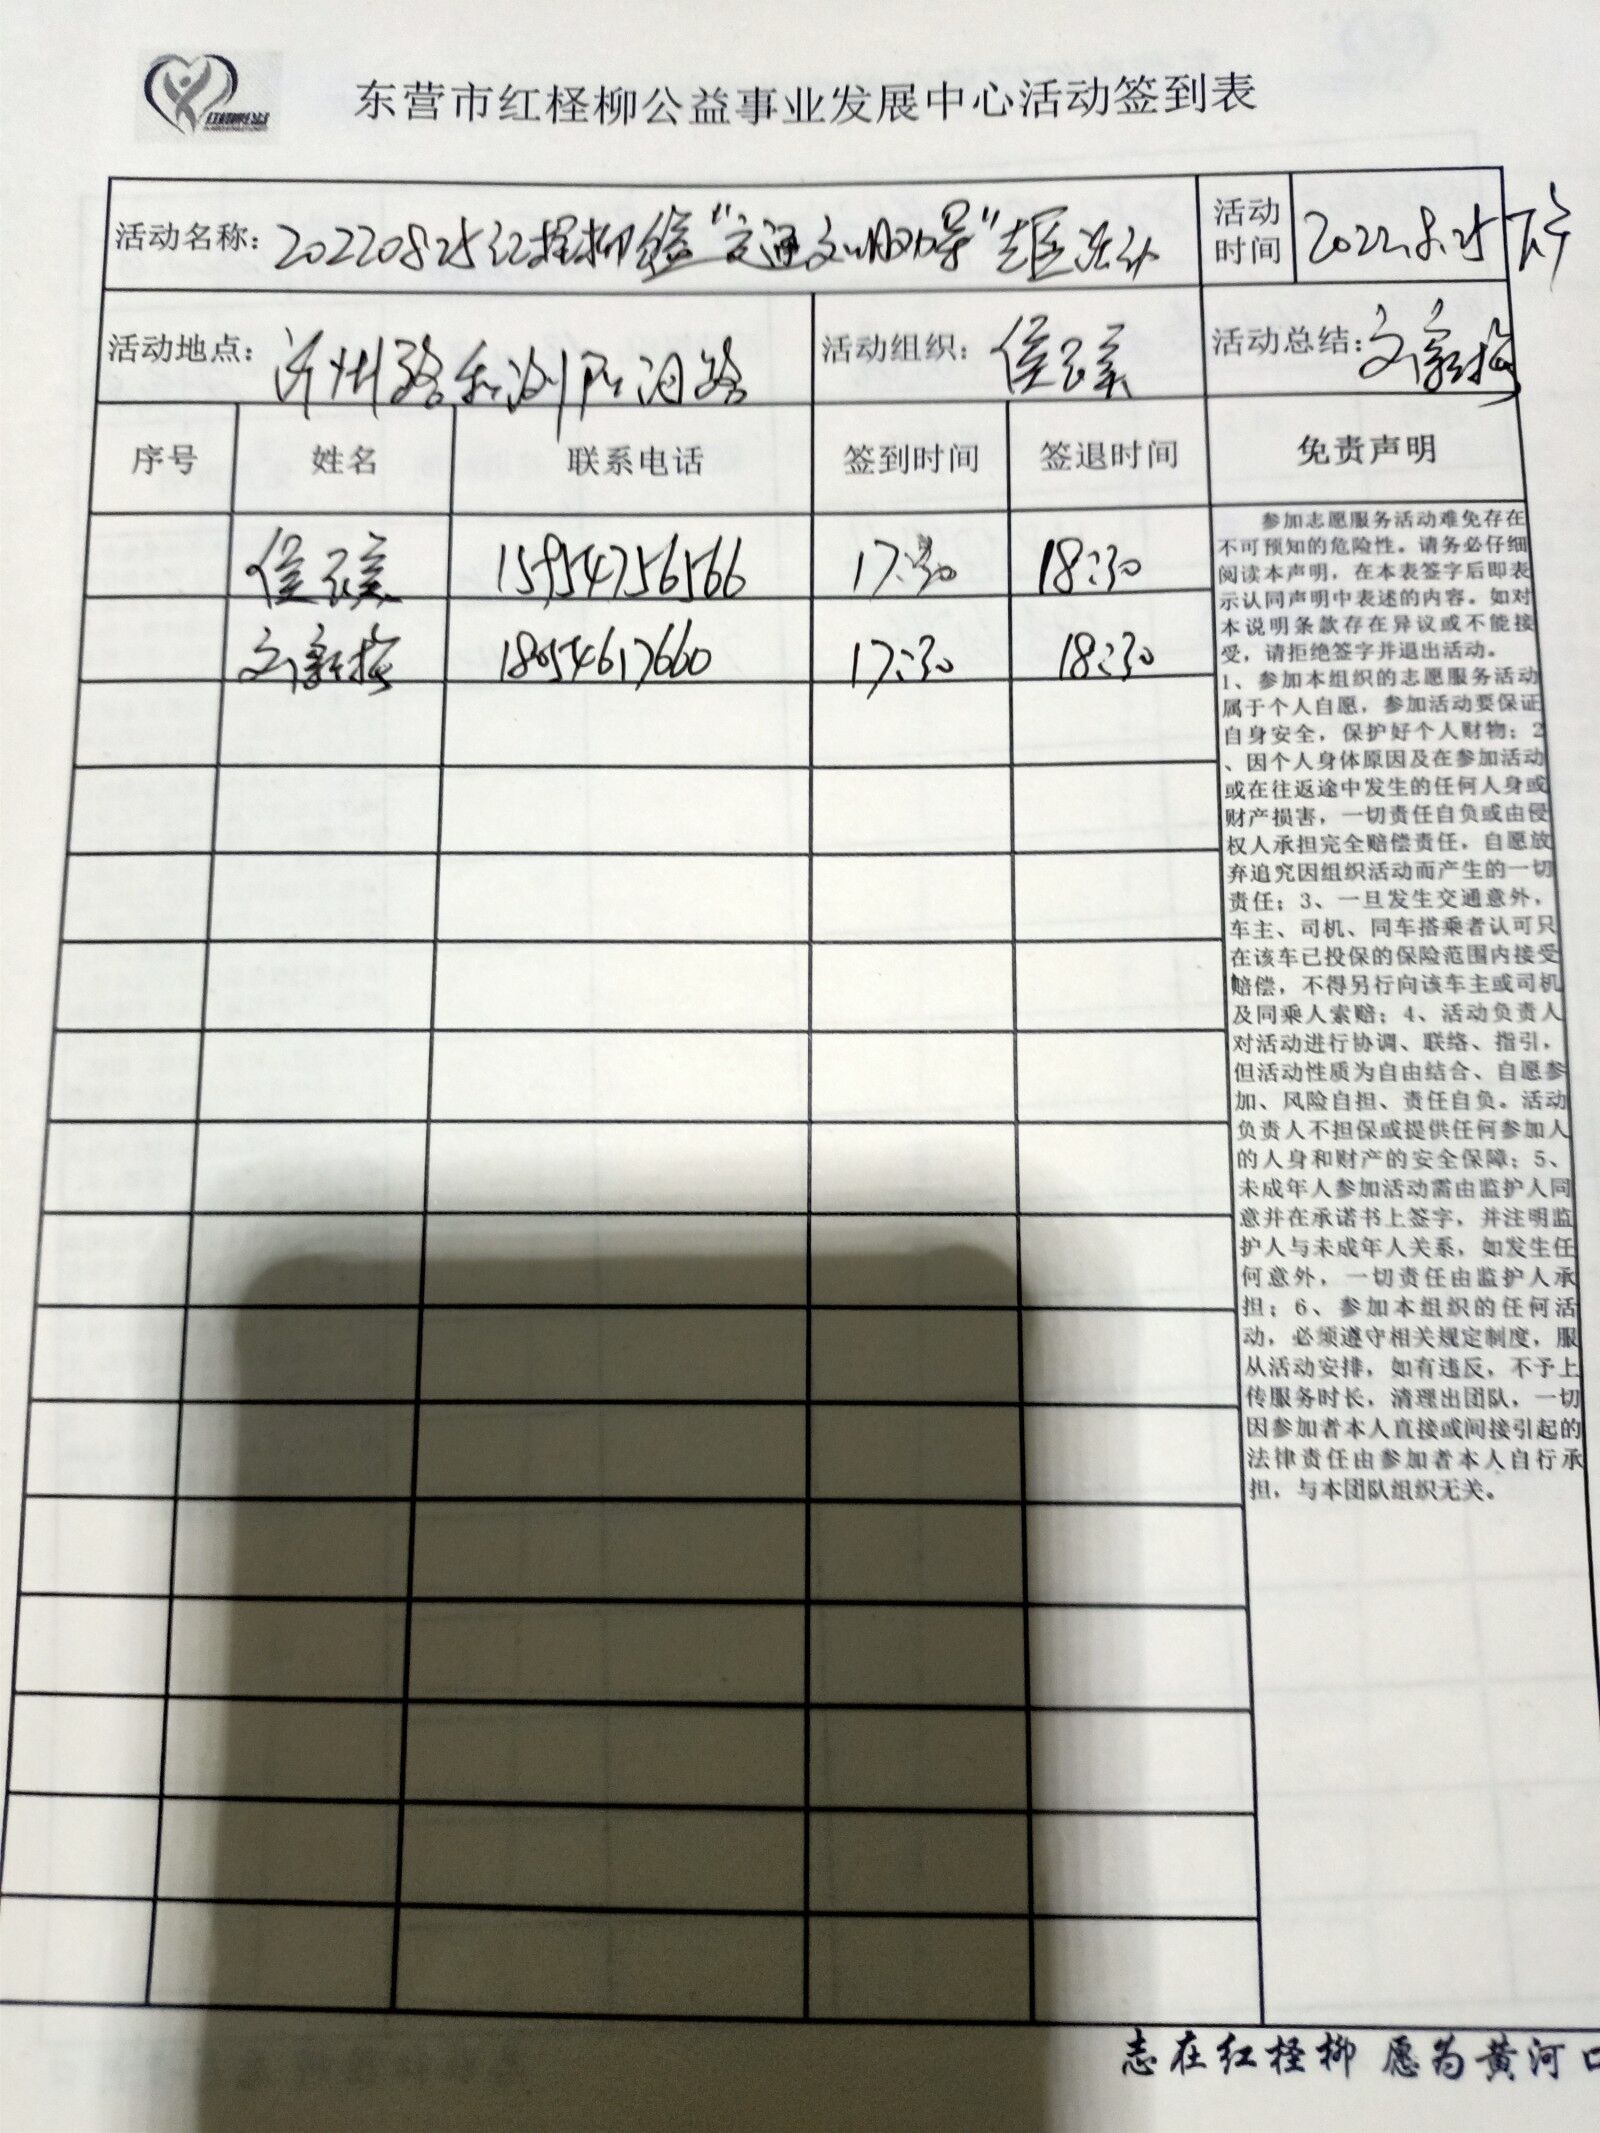 东营市红柽柳公益事业发展中心活动签到表
活动名称：20220825红柽柳 "交通文明劝导"志愿活动
活动时间 2022.8.25 下午
活动地点：沂州路和浏阳河路
活动组织：侯
活动总结：文新梅
序号 姓名 联系电话 签到时间 签退时间 免责声明
侯 15954756566 17:30 18:30
文新梅 18954617660 17:30 18:30
参加志愿服务活动难免存在
不可预知的危险性。请务必仔细
阅读本声明，在本表签字后即表
示认同声明中表述的内容。如对
本说明条款存在异议或不能接
受，请拒绝签字并退出活动。
1、参加本组织的志愿服务活动
属于个人自愿，参加活动要保证
自身安全，保护好个人财物；2
、因个人身体原因及在参加活动
或在往返途中发生的任何人身或
财产损害，一切责任自负或由侵
权人承担完全赔偿责任，自愿放
弃追究因组织活动而产生的一切
责任；3、一旦发生交通意外，
车主、司机、同车搭乘者认可只
在该车已投保的保险范围内接受
赔偿，不得另行向该车主或司机
及同乘人索赔；4、活动负责人
对活动进行协调、联络、指引，
但活动性质为自由结合、自愿参
加、风险自担、责任自负。活动
负责人不担保或提供任何参加人
的人身和财产的安全保障；5、
未成年人参加活动需由监护人同
意并在承诺书上签字，并注明监
护人与未成年人关系，如发生任
何意外，一切责任由监护人承
担；6、参加本组织的任何活
动，必须遵守相关规定制度，服
从活动安排，如有违反，不予上
传服务时长，清理出团队，一切
因参加者本人直接或间接引起的
法律责任由参加者本人自行承
担，与本团队组织无关。
志在红柽柳 愿为黄河口